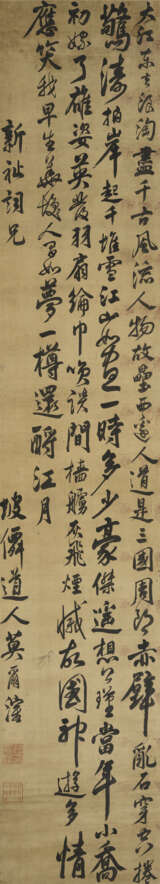 大江东去浪淘盡千古風流人物故壘西邊人道是三國周郎赤壁亂石穿空捲
驚濤拍岸起千堆雪江山如畫一時多少豪傑遙想公瑾當年小喬
初嫁了雄姿英發羽扇綸巾笑談間檣艣灰飛煙滅故國神遊多情
應笑我早生華髮人間如夢一樽還酹江月
新祉詞兄
坡僊道人莫爾蔭